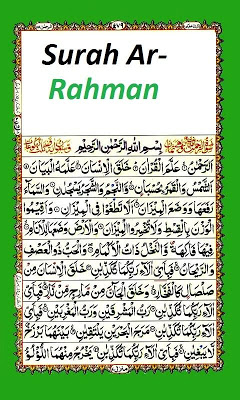 Surah Ar-
Rahman
بِسْمِ اللّٰهِ الرَّحْمٰنِ الرَّحِيْمِ
اَلرَّحْمٰنُ عَلَّمَ الْقُرْاٰنَ خَلَقَ الْاِنْسَانَ عَلَّمَهُ الْبَيَانَ
اَلشَّمْسُ وَالْقَمَرُ بِحُسْبَانٍ وَّالنَّجْمُ وَالشَّجَرُ يَسْجُدٰنِ وَالسَّمَآءَ
رَفَعَهَا وَوَضَعَ الْمِيْزَانَ اَلَّا تَطْغَوْا فِى الْمِيْزَانِ وَاَقِيْمُوا
الْوَزْنَ بِالْقِسْطِ وَلَا تُخْسِرُوا الْمِيْزَانَ وَالْاَرْضَ وَضَعَهَا لِلْاَنَامِ
فِيْهَا فَاكِهَةٌ وَّالنَّخْلُ ذَاتُ الْاَكْمَامِ وَالْحَبُّ ذُو الْعَصْفِ
وَالرَّيْحَانُ فَبِاَىِّ اٰلَآءِ رَبِّكُمَا تُكَذِّبٰنِ خَلَقَ الْاِنْسَانَ مِنْ
صَلْصَالٍ كَالْفَخَّارِ وَخَلَقَ الْجَآنَّ مِنْ مَّارِجٍ مِّنْ نَّارٍ فَبِاَىِّ
اٰلَآءِ رَبِّكُمَا تُكَذِّبٰنِ رَبُّ الْمَشْرِقَيْنِ وَرَبُّ الْمَغْرِبَيْنِ
فَبِاَىِّ اٰلَآءِ رَبِّكُمَا تُكَذِّبٰنِ مَرَجَ الْبَحْرَيْنِ يَلْتَقِيٰنِ بَيْنَهُمَا بَرْزَخٌ
لَّا يَبْغِيٰنِ فَبِاَىِّ اٰلَآءِ رَبِّكُمَا تُكَذِّبٰنِ يَخْرُجُ مِنْهُمَا اللُّؤْلُؤُ